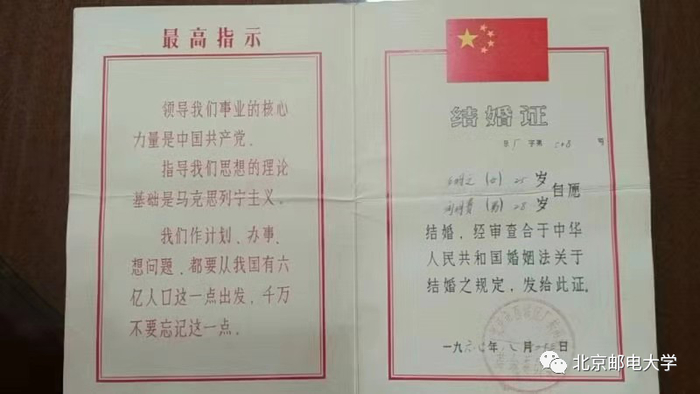 最高指示
领导我们事业的核心
力量是中国共产党.
指导我们思想的理论
基础是马克思列宁主义.
我们作计划、办事、
想问题，都要从我国有六
亿人口这一点出发，千万
不要忘记这一点.
结婚证
字第 号
(女) 25 岁
自愿
(男) 28 岁
结婚，经审查合于中华
人民共和国婚姻法关于
结婚之规定，发给此证.
一九六 年 月 日
北京邮电大学